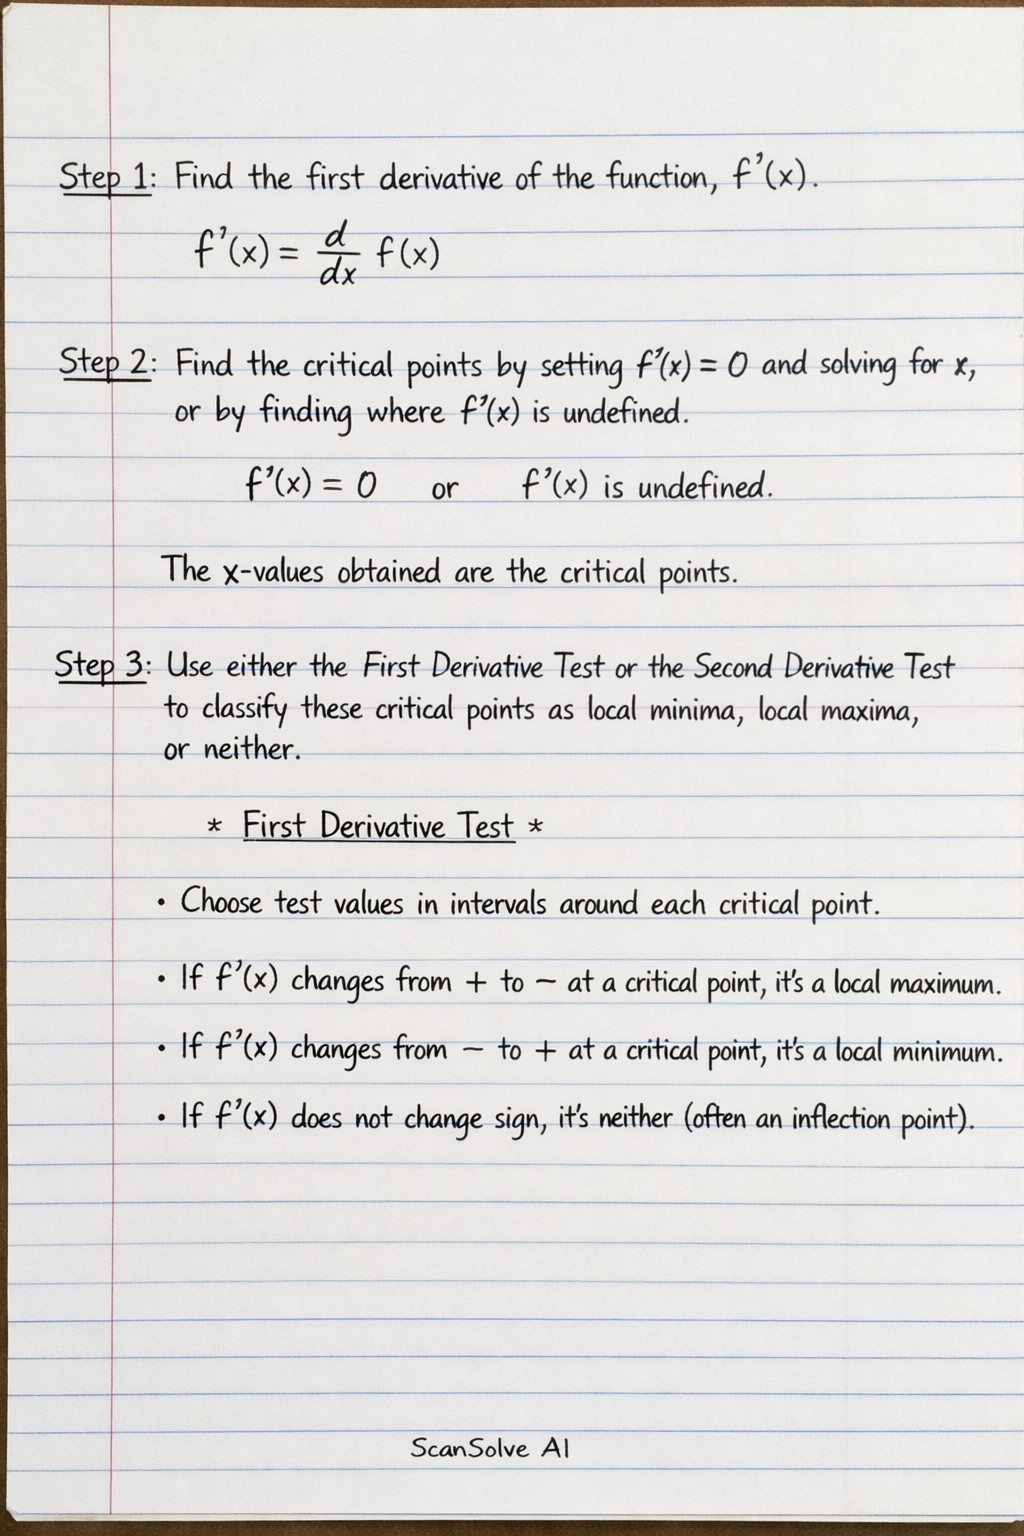 Step 1: Find the first derivative of the function, f'(x).
f'(x) = d/dx f(x)
Step 2: Find the critical points by setting f'(x) = 0 and solving for x,
or by finding where f'(x) is undefined.
f'(x) = 0 or f'(x) is undefined.
The x-values obtained are the critical points.
Step 3: Use either the First Derivative Test or the Second Derivative Test
to classify these critical points as local minima, local maxima,
or neither.
* First Derivative Test *
• Choose test values in intervals around each critical point.
• If f'(x) changes from + to − at a critical point, it's a local maximum.
• If f'(x) changes from − to + at a critical point, it's a local minimum.
• If f'(x) does not change sign, it's neither (often an inflection point).
ScanSolve AI